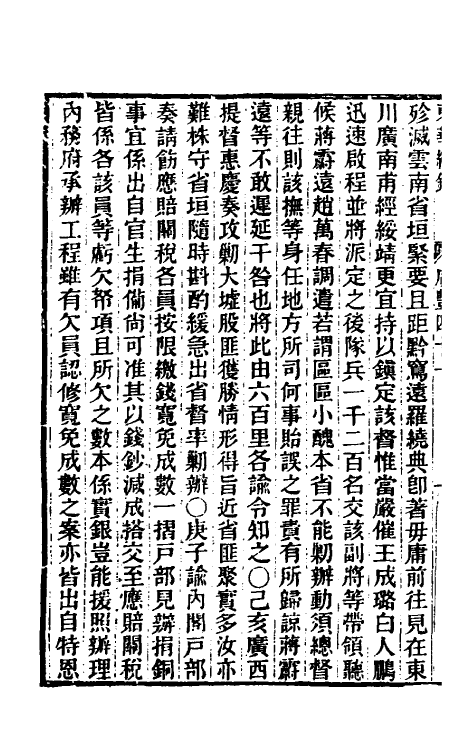 殄滅雲南省垣緊要且距黔窵遠羅繞典卽著毋庸前往見在東
川廣南甫經綏靖更宜持以鎭定該督惟當嚴催王成璐白人鵬
迅速啟程並將派定之後隊兵一千二百名交該副將等帶領聽
候蔣霨遠趙萬春調遣若謂區區小醜本省不能剿辦動須總督
親往則該撫等身任地方所司何事貽誤之罪責有所歸諒蔣霨
遠等不敢遲延干咎也將此由六百里各諭令知之○己亥廣西
提督惠慶奏攻剿大墟股匪獲勝情形得旨近省匪聚實多汝亦
難株守省垣隨時斟酌緩急出省督率剿辦○庚子諭內閣戶部
奏請飭應賠關稅各員按限繳錢寬免成數一摺戶部見辦捐銅
事宜係出自官生捐備尙可准其以錢鈔減成搭交至應賠關稅
皆係各該員等虧欠帑項且所欠之數本係實銀豈能援照辦理
內務府承辦工程雖有欠員認修寬免成數之案亦皆出自特恩